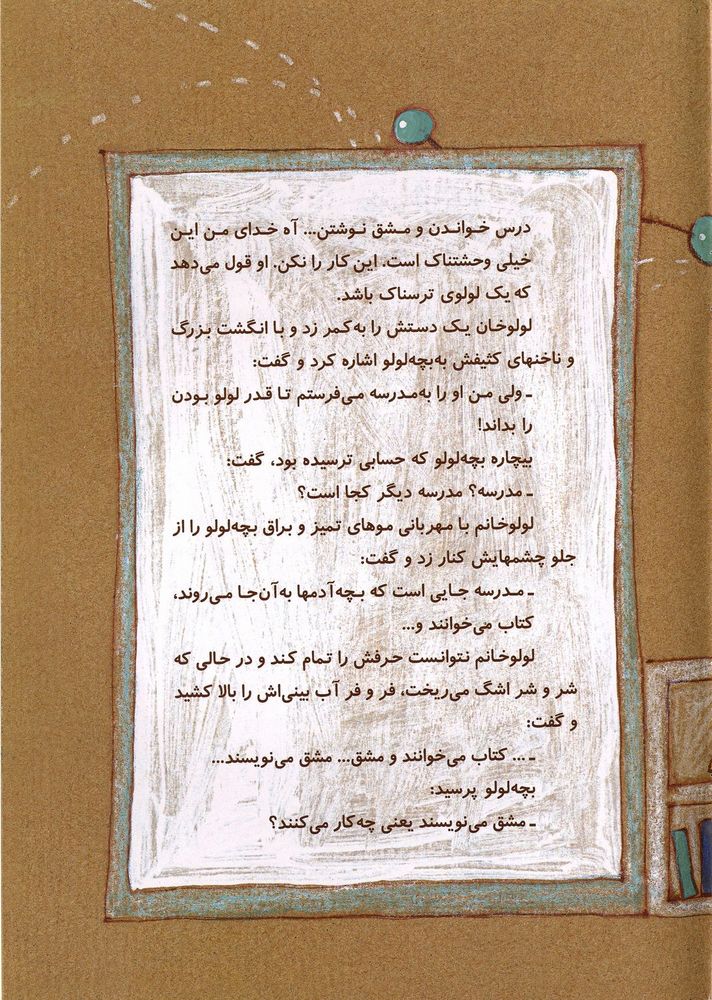 درس خواندن و مشق نوشتن... آه خدای من این
خیلی وحشتناک است. این کار را نکن. او قول می‌دهد
که یک لولوی ترسناک باشد.
لولوخان یک دستش را به‌کمر زد و با انگشت بزرگ
و ناخنهای کثیفش به‌بچه‌لولو اشاره کرد و گفت:
ـ ولی من او را به‌مدرسه می‌فرستم تا قدر لولو بودن
را بداند!
بیچاره بچه‌لولو که حسابی ترسیده بود، گفت:
ـ مدرسه؟ مدرسه دیگر کجا است؟
لولوخانم با مهربانی موهای تمیز و براق بچه‌لولو را از
جلو چشمهایش کنار زد و گفت:
ـ مدرسه جایی است که بچه‌آدمها به‌آن‌جا می‌روند،
کتاب می‌خوانند و...
لولوخانم نتوانست حرفش را تمام کند و در حالی که
شر و شر اشگ می‌ریخت، فر و فر آب بینی‌اش را بالا کشید
و گفت:
ـ ... کتاب می‌خوانند و مشق... مشق می‌نویسند...
بچه‌لولو پرسید:
ـ مشق می‌نویسند یعنی چه‌کار می‌کنند؟